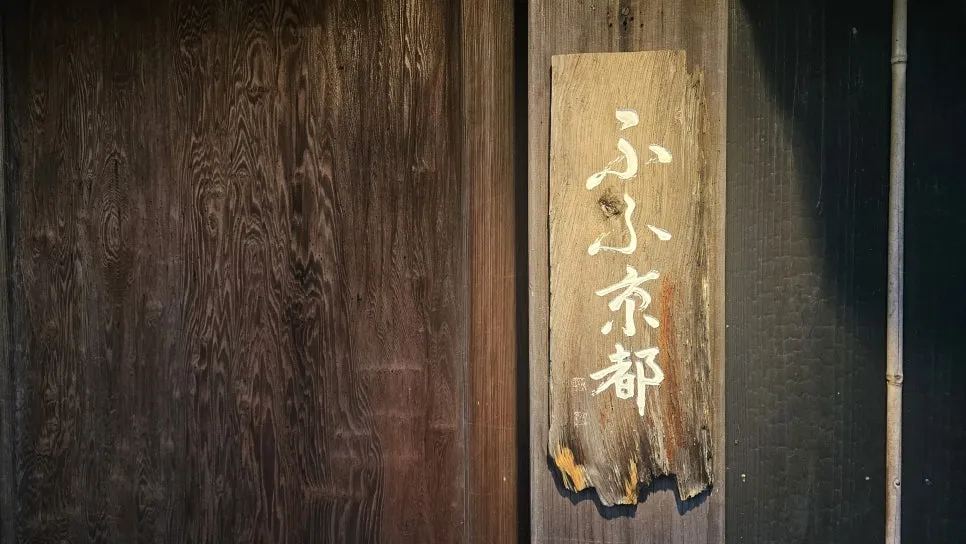 ふふ京都